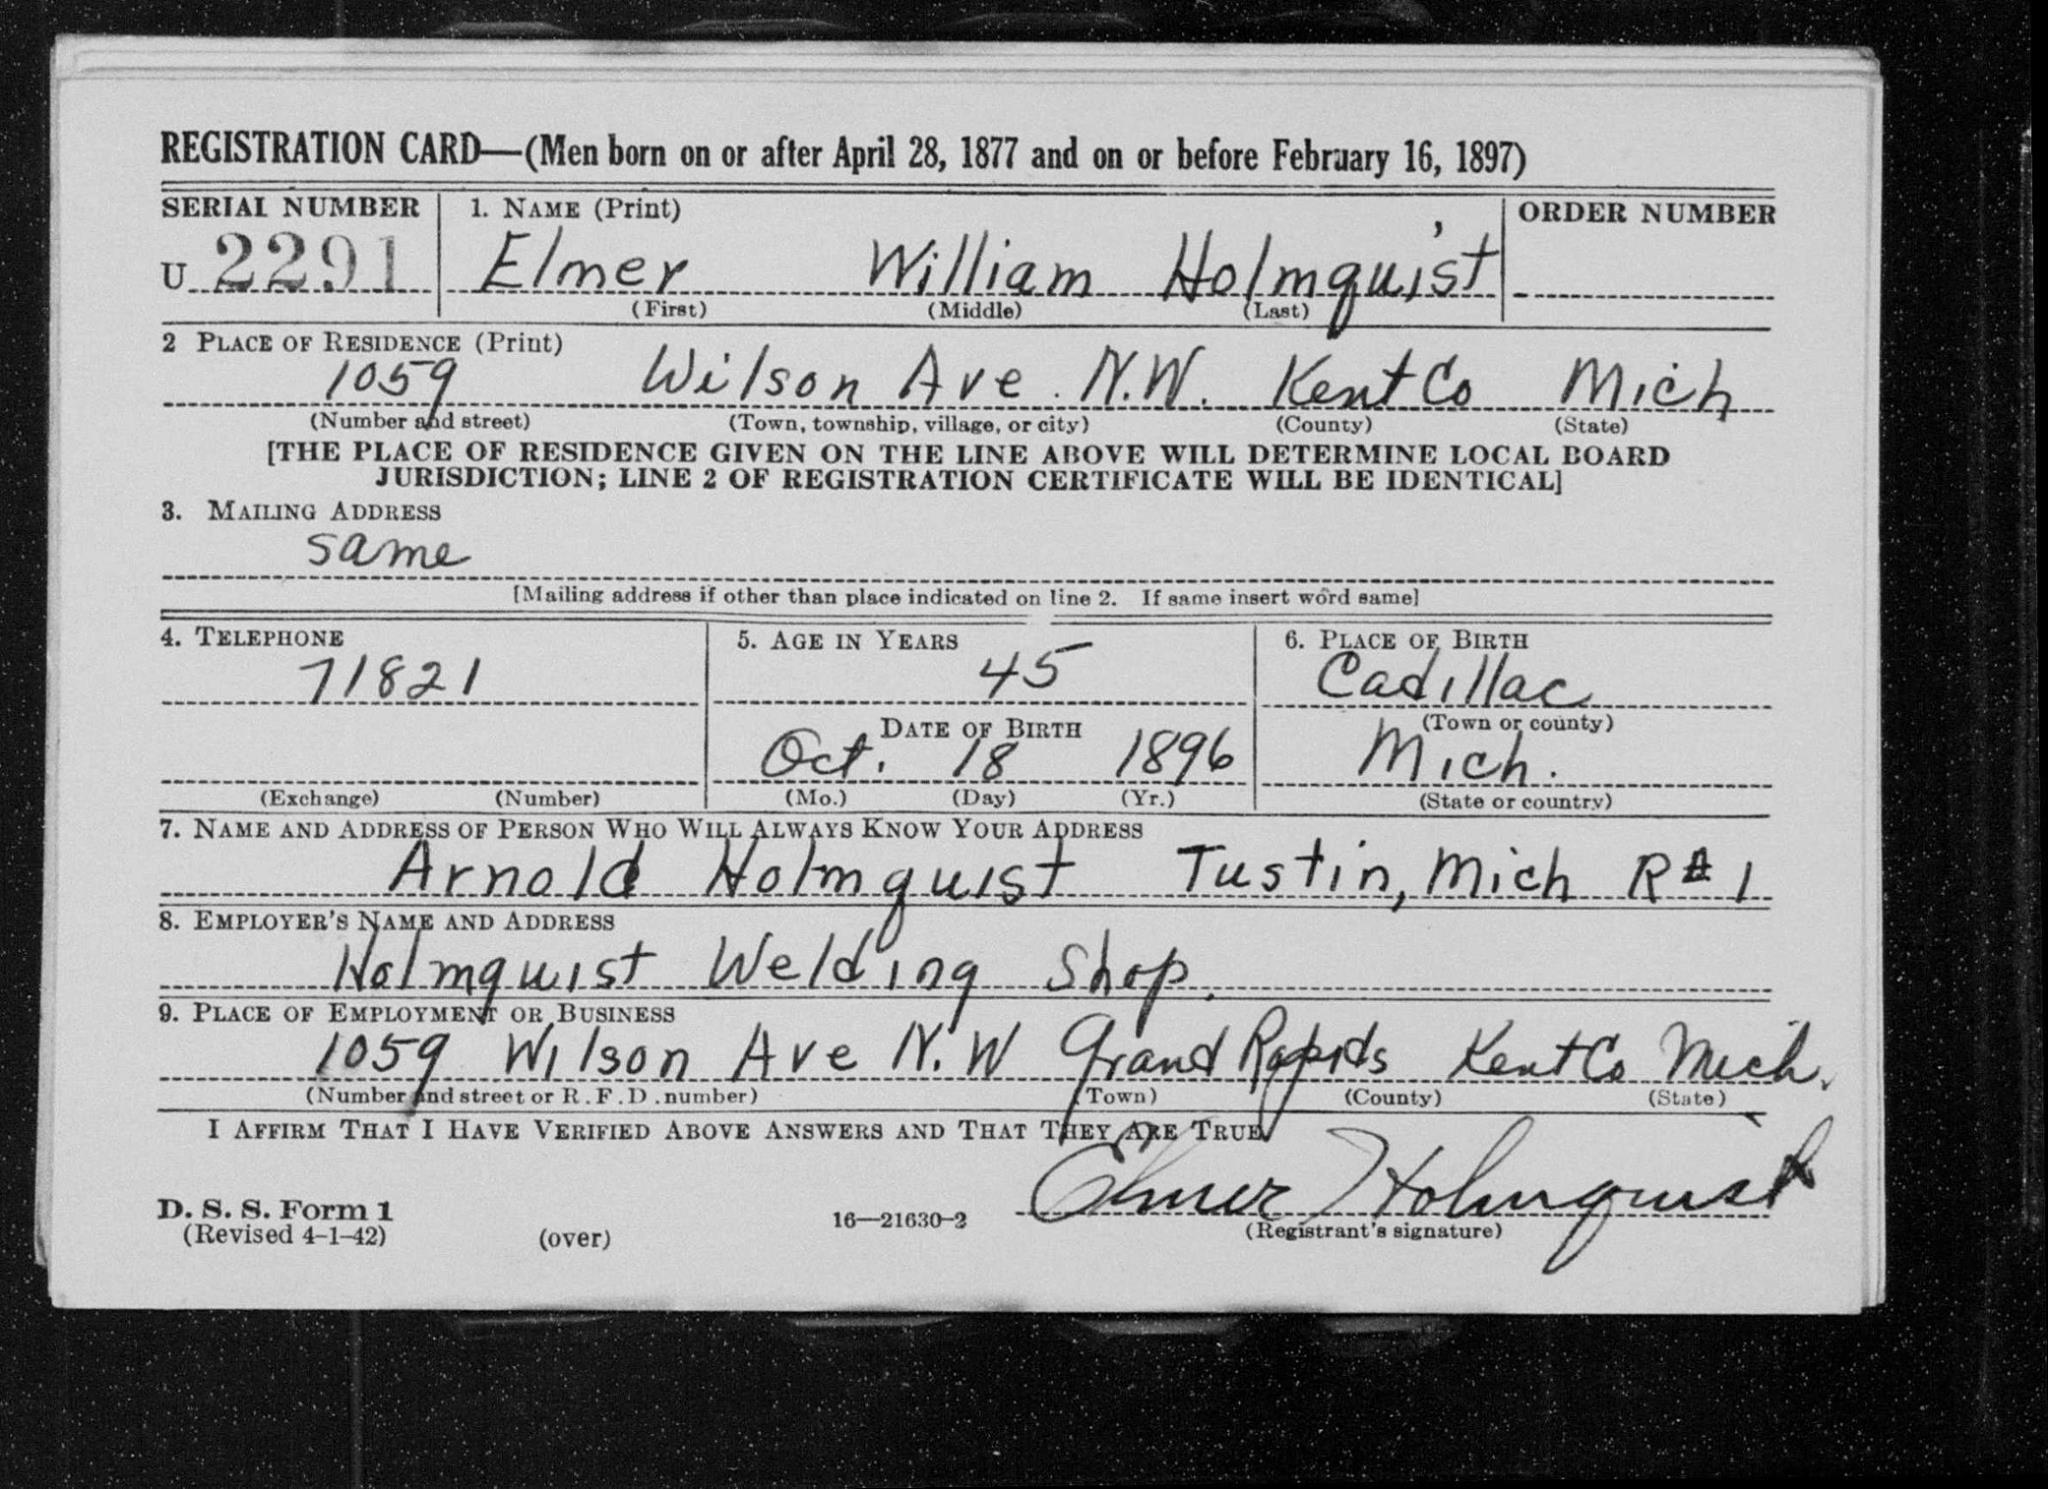 REGISTRATION CARD—(Men born on or after April 28, 1877 and on or before February 16, 1897)
SERIAL NUMBER 1. NAME (Print) ORDER NUMBER
U 2291 Elmer William Holmquist
(First) (Middle) (Last)
2 PLACE OF RESIDENCE (Print)
1059 Wilson Ave. N.W. Kent Co Mich
(Number and street) (Town, township, village, or city) (County) (State)
[THE PLACE OF RESIDENCE GIVEN ON THE LINE ABOVE WILL DETERMINE LOCAL BOARD
JURISDICTION; LINE 2 OF REGISTRATION CERTIFICATE WILL BE IDENTICAL]
3. MAILING ADDRESS
same
[Mailing address if other than place indicated on line 2. If same insert word same]
4. TELEPHONE 5. AGE IN YEARS 6. PLACE OF BIRTH
71821 45 Cadillac
DATE OF BIRTH (Town or county)
Oct. 18 1896 Mich.
(Exchange) (Number) (Mo.) (Day) (Yr.) (State or country)
7. NAME AND ADDRESS OF PERSON WHO WILL ALWAYS KNOW YOUR ADDRESS
Arnold Holmquist Tustin, Mich R#1
8. EMPLOYER'S NAME AND ADDRESS
Holmquist Welding Shop.
9. PLACE OF EMPLOYMENT OR BUSINESS
1059 Wilson Ave N.W Grand Rapids Kent Co Mich.
(Number and street or R.F.D. number) (Town) (County) (State)
I AFFIRM THAT I HAVE VERIFIED ABOVE ANSWERS AND THAT THEY ARE TRUE.
Elmer Holmquist
D. S. S. Form 1 16—21630-2 (Registrant's signature)
(Revised 4-1-42) (over)